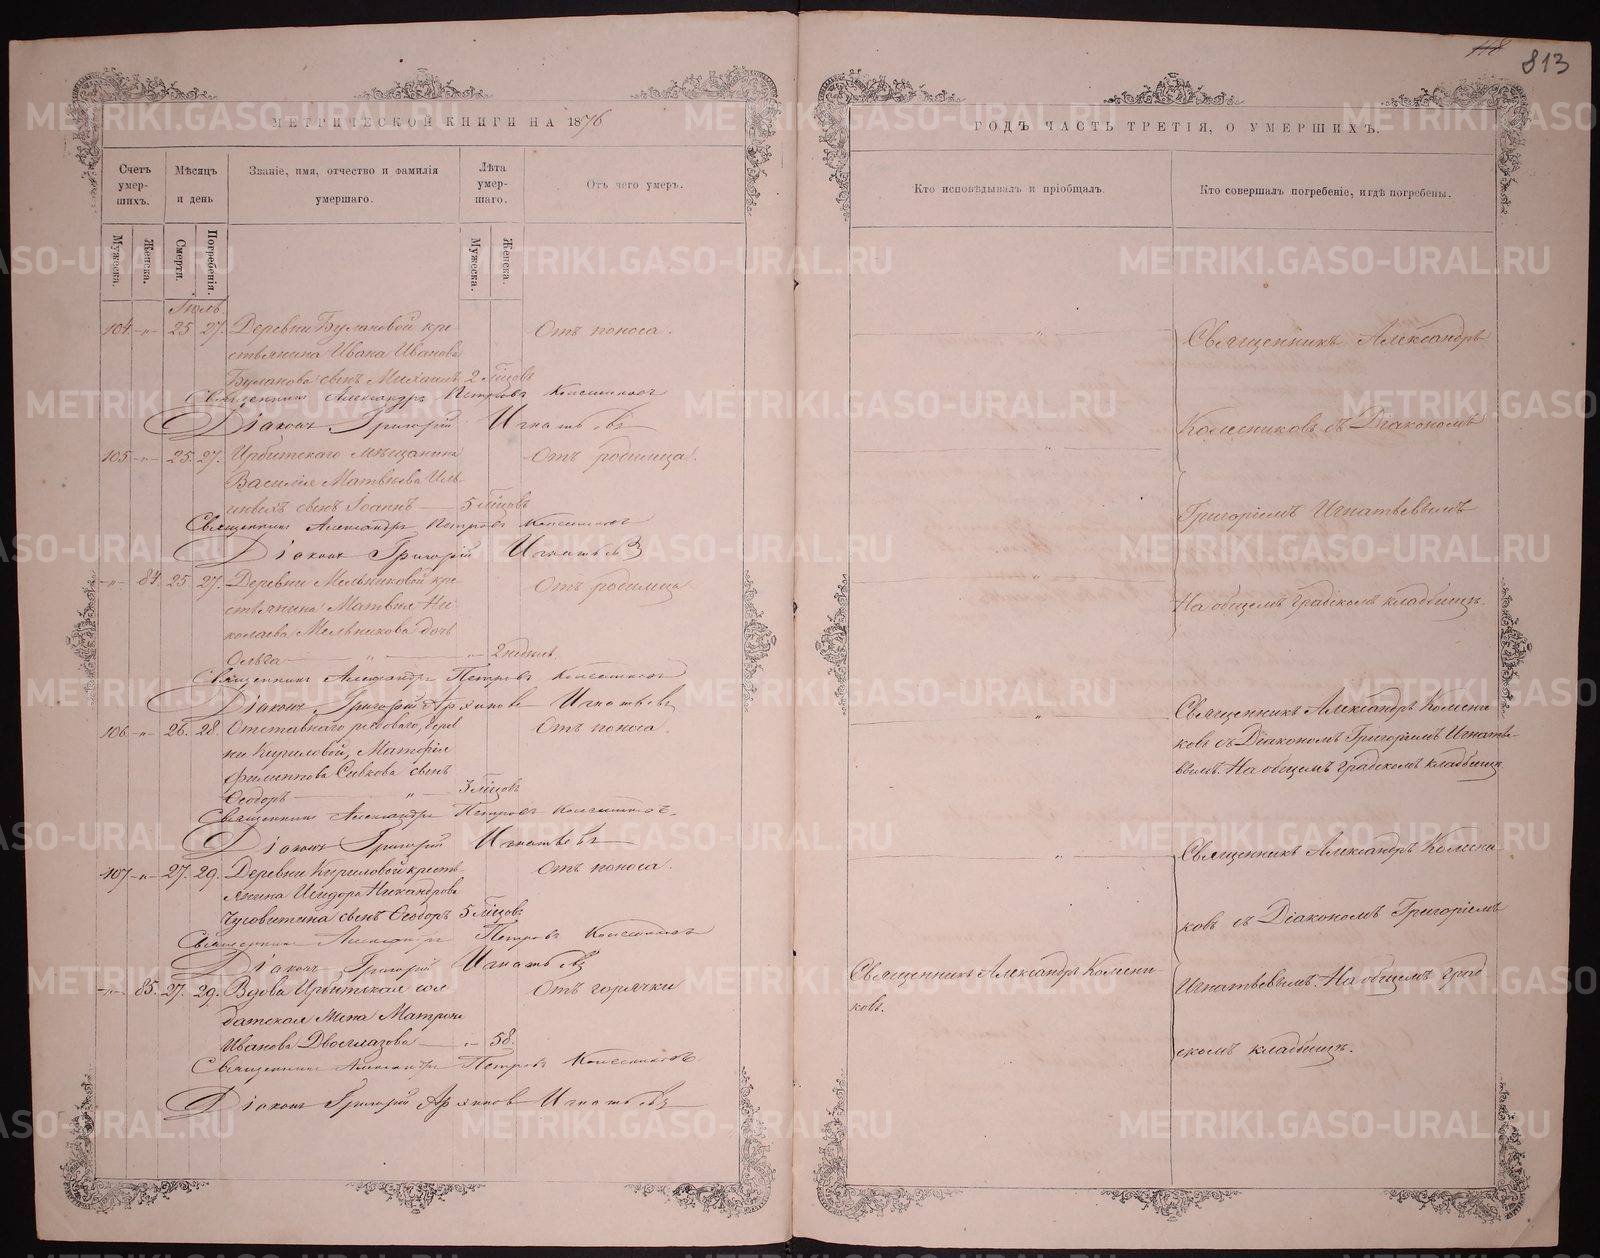 118
813
МЕТРИЧЕСКОЙ КНИГИ НА 1876
ГОДЪ ЧАСТЬ ТРЕТІЯ, О УМЕРШИХЪ.
Счетъ умер-шихъ.
Мѣсяцъ и день
Званіе, имя, отчество и фамилія умершаго.
Лѣта умер-шаго.
Отъ чего умеръ.
Кто исповѣдывалъ и пріобщалъ.
Кто совершалъ погребеніе, и гдѣ погребены.
Мужеска.
Женска.
Смерти.
Погребенія.
Мужеска.
Женска.
Іюль
104. -"- 25 27. Деревни Булановой кре- Отъ поноса.
стьянина Ивана Иванова
Буланова сынъ Михаилъ 2 м҃цовъ
Священникъ Александръ Петровъ Колесниковъ
Діаконъ Григорій Игнатьевъ
105 -"- 25. 27. Ирбитскаго мѣщанина Отъ родимца.
Василія Матвѣева
сынъ Іоаннъ 5 м҃цовъ
Священникъ Александръ Петровъ Колесниковъ
Діаконъ Григорій Игнатьевъ
-"- 84 25 27. Деревни Мельниковой кре- Отъ родимца
стьянина Матвѣя Ни-
колаева Мельникова дочь
Ольга " 2 недѣль.
Священникъ Александръ Петровъ Колесниковъ
Діаконъ Григорій Архиповъ Игнатьевъ
106 -"- 26. 28. Отставнаго рядоваго, дерев Отъ поноса.
ни Кириловой, Матфія
Филиппова Сивкова сынъ
Ѳеодоръ " 3 м҃цовъ
Священникъ Александръ Петровъ Колесниковъ.
Діаконъ Григорій Игнатьевъ
107 -"- 27. 29. Деревни Кириловой кресть- Отъ поноса.
янина Исидора Никандрова
Чусовитина сынъ Ѳеодоръ 5 м҃цовъ
Священникъ Александръ Петровъ Колесниковъ
Діаконъ Григорій Игнатьевъ
-"- 85. 27. 29. Вдова Ирбитская сол- Отъ горячки
датская жена Матрона
Иванова Двоеглазова -"- 58.
Священникъ Александръ Петровъ Колесниковъ.
Діаконъ Григорій Архиповъ Игнатьевъ
Священникъ Александръ
Колесниковъ съ Діакономъ
Григоріемъ Игнатьевымъ
На общемъ градскомъ кладбищѣ.
Священникъ Александръ Колесни-
ковъ съ Діакономъ Григоріемъ Игнать-
евымъ. На общемъ градскомъ кладбищѣ
Священникъ Александръ Колесни-
ковъ съ Діакономъ Григоріемъ
Священникъ Александръ Колесни-
ковъ.
Игнатьевымъ. На общемъ град
скомъ кладбищѣ.
METRIKI.GASO-URAL.RU